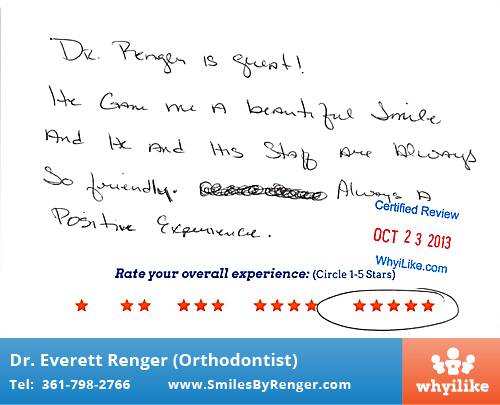 Dr. Renger is great!
He Gave me A beautiful Smile
And He And His Staff Are Always
So friendly. Always A
Positive Experience.
Certified Review
OCT 23 2013
WhyiLike.com
Rate your overall experience: (Circle 1-5 Stars)
Dr. Everett Renger (Orthodontist)
Tel: 361-798-2766 www.SmilesByRenger.com
whyilike